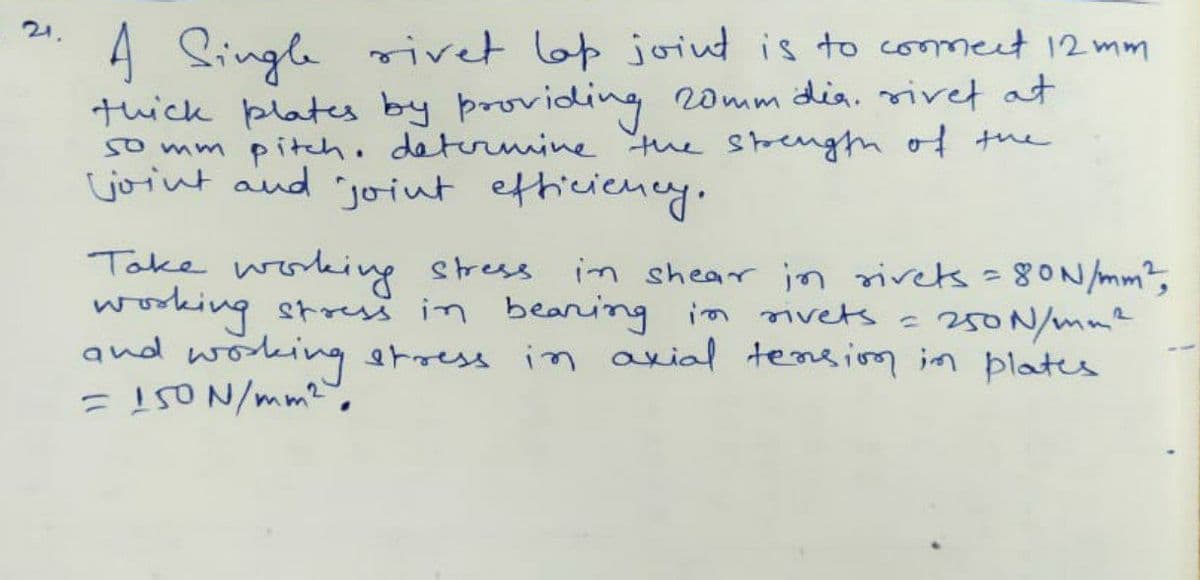 21. A Single rivet lap joint is to connect 12 mm
thick plates by providing 20mm dia. rivet at
50 mm pitch. determine the strength of the
joint and joint efficiency.
Take working stress in shear in rivets = 80 N/mm²,
working stress in bearing in rivets = 250 N/mm²
and working stress in axial tension in plates
= 150 N/mm².